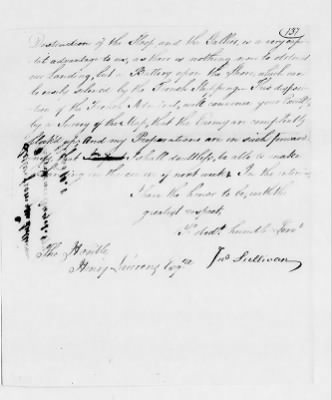 137
Destruction of the Ship and the Gallies, is a very
advantage to us, as there is nothing now to defend
our Landing, but a Battery upon the Shore, which can
be easily silenced by the French Shipping. This disposi-
tion of the French Admiral, will convince your Excell'y
by a Survey of the Map, that the Enemy are compleatly
block'd up, and my Preparations are in such forward-
ness that I shall doubtless, be able to make
Landing in the course of next week. In the interim
I have the honor to be, with the
greatest respect,
humble Serv't
Jno Sullivan
The Hon'ble
Henry Laurens Esqr.